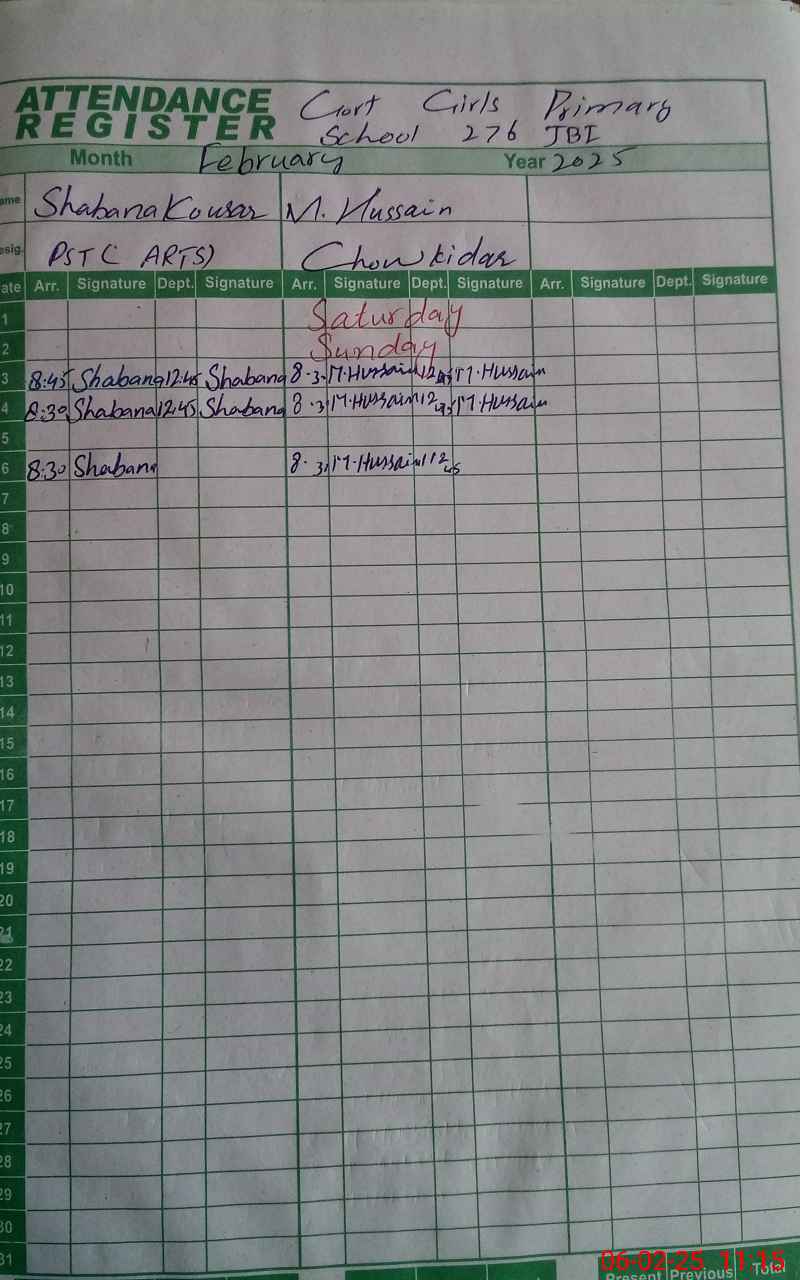 ATTENDANCE Govt Girls Primary
REGISTER School 276 JBI
Month February Year 2025
ame Shabana Kousar M. Hussain
esig. PST( ARTS) Chowkidar
ate Arr. Signature Dept. Signature Arr. Signature Dept. Signature Arr. Signature Dept. Signature
1 Saturday
2 Sunday
3 8:45 Shabana 12:45 Shabana 8.3 M.Hussain 12 45 M.Hussain
4 8:30 Shabana 12:45 Shabana 8.3 M.Hussain 12 45 M.Hussain
5
6 8:30 Shabana 8.3 M.Hussain 12 45
7
8
9
10
11
12
13
14
15
16
17
18
19
20
21
22
23
24
25
26
27
28
29
30
31
06-02-25 11:15
Present Previous Total